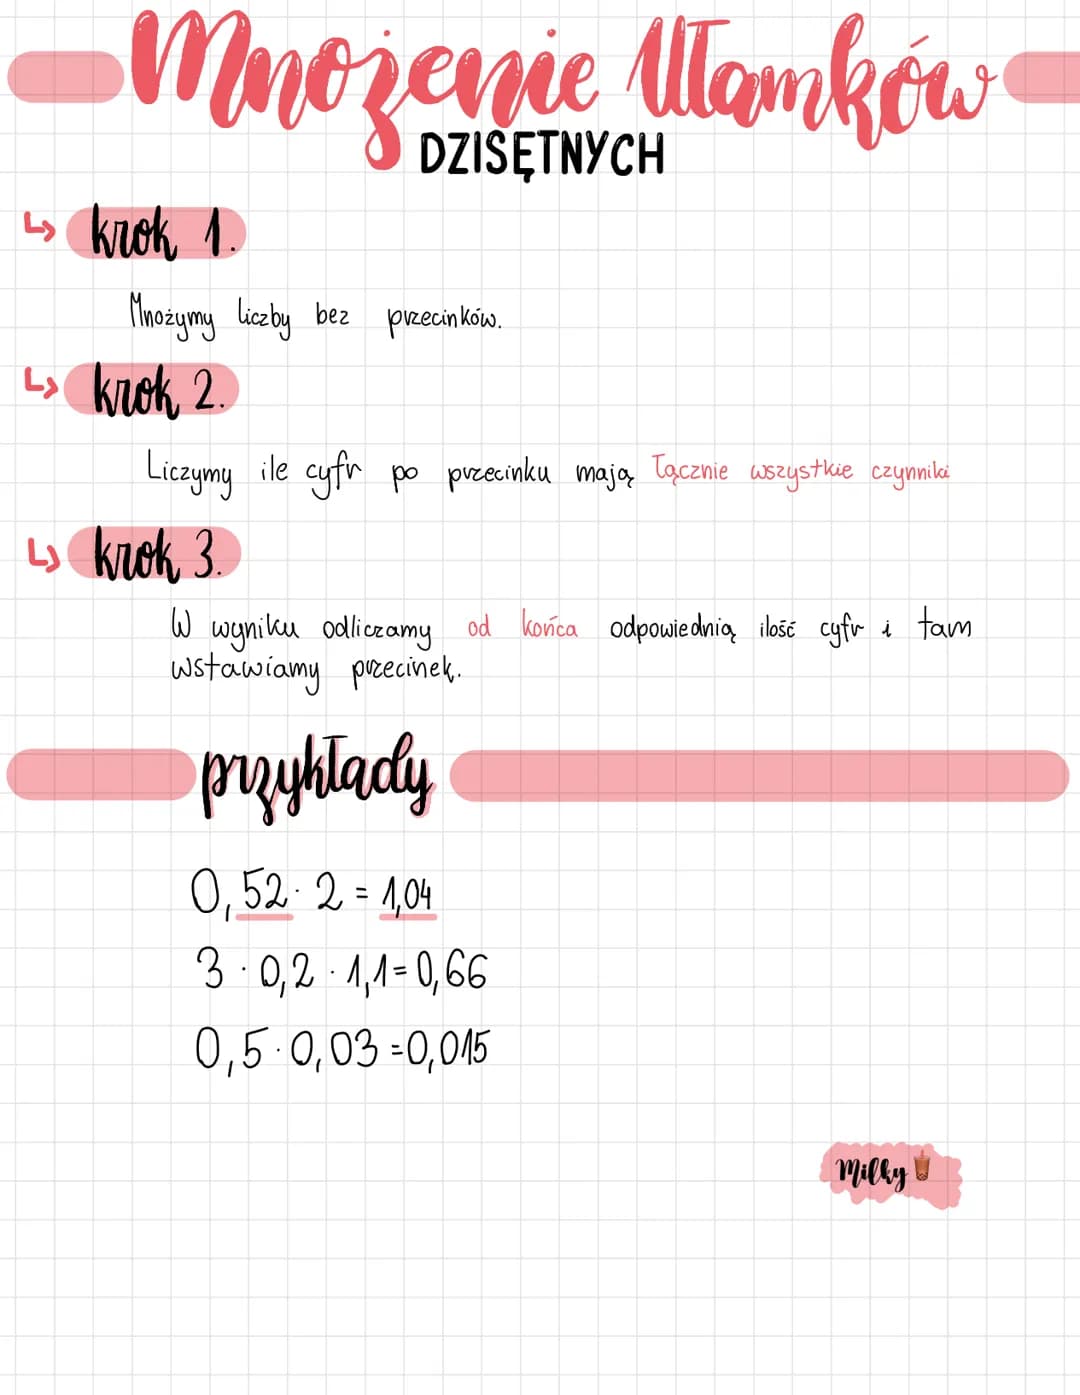 Mnożenie Ułamków
DZISĘTNYCH
krok 1.
Mnożymy liczby bez przecinków.
krok 2.
Liczymy ile cyfr po przecinku mają łącznie wszystkie czynniki
krok 3.
W wyniku odliczamy od końca odpowiednią ilość cyfr i tam
wstawiamy przecinek.
przykłady
0,52 · 2 = 1,04
3 · 0,2 · 1,1 = 0,66
0,5 · 0,03 = 0,015
Milky